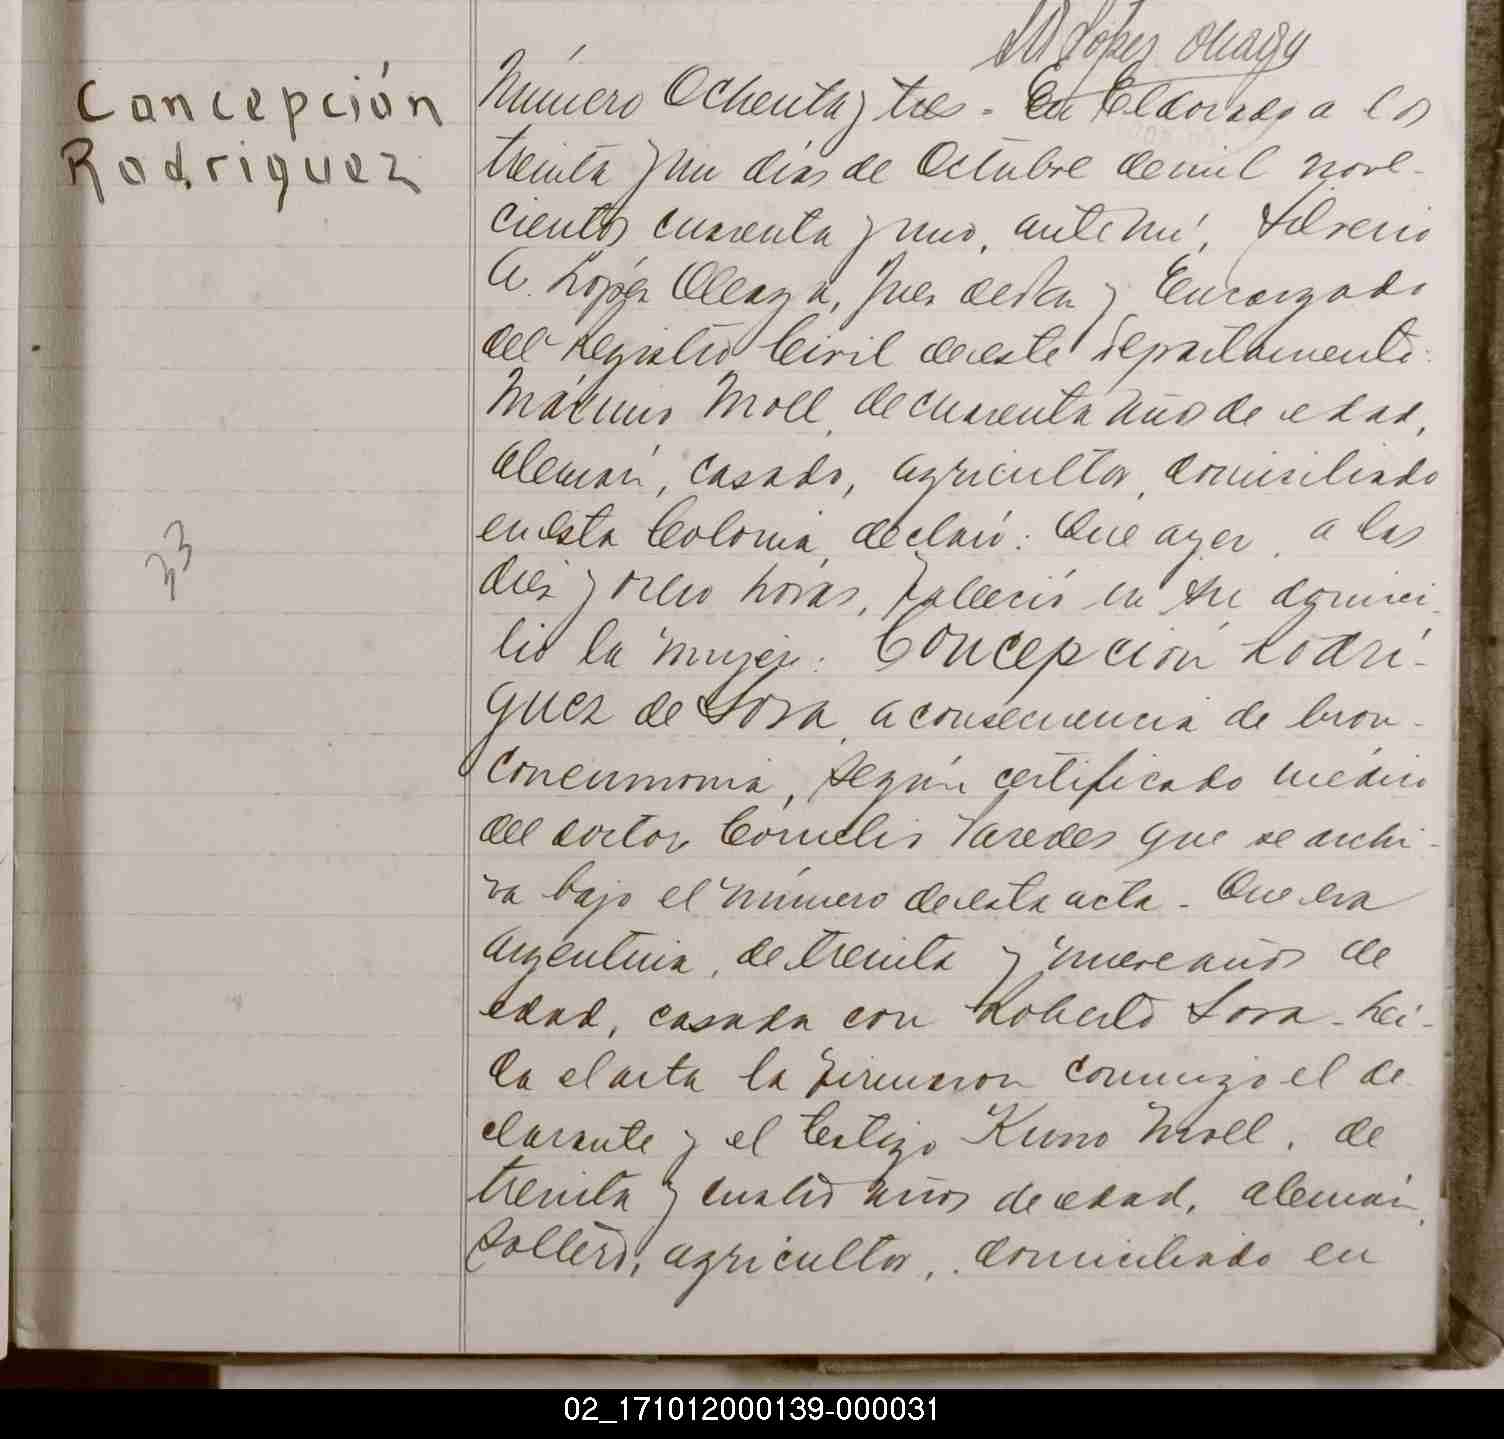 López Oleaga
Concepción
Rodriguez
Número Ochenta y tres - En Eldorado, a los
treinta y un días de Octubre de mil nove-
cientos cuarenta y uno, ante mí, Silverio
A. López Oleaga, Juez de Paz y Encargado
del Registro Civil de este departamento:
Máximo Moll, de cuarenta años de edad,
alemán, casado, agricultor, domiciliado
en esta Colonia, declaró: Que ayer, a las
diez y ocho horas, falleció en su domici-
lio la mujer: Concepción Rodrí-
guez de Sosa, a consecuencia de bron-
coneumonia, según certificado médico
del doctor Cornelio Paredes que se archi-
va bajo el número de esta acta - Que era
argentina, de treinta y nueve años de
edad, casada con Roberto Sosa - Leí-
da el acta la firmaron conmigo el de-
clarante y el testigo Kuno Moll, de
treinta y cuatro años de edad, alemán,
soltero, agricultor, domiciliado en
33
02_171012000139-000031